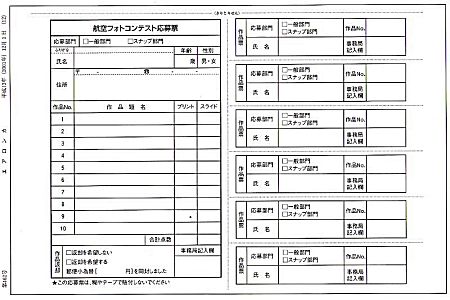 航空フォトコンテスト応募票
応募部門 □一般部門 □スナップ部門
ふりがな 年齢 性別
氏名 歳 男・女
〒 ☎
住所
作品No. 作品題名 プリント スライド
1
2
3
4
5
6
7
8
9
10
合計点数
作品返却 □返却を希望しない 事務局記入欄
□返却を希望する
郵便小為替( 円)を同封しました
★この応募票は、糊やテープで貼付しないでください
(きりとりせん)
作品票 応募部門 □一般部門 □スナップ部門 作品No.
氏名 事務局記入欄
作品票 応募部門 □一般部門 □スナップ部門 作品No.
氏名 事務局記入欄
作品票 応募部門 □一般部門 □スナップ部門 作品No.
氏名 事務局記入欄
作品票 応募部門 □一般部門 □スナップ部門 作品No.
氏名 事務局記入欄
作品票 応募部門 □一般部門 □スナップ部門 作品No.
氏名 事務局記入欄
作品票 応募部門 □一般部門 □スナップ部門 作品No.
氏名 事務局記入欄
(12)